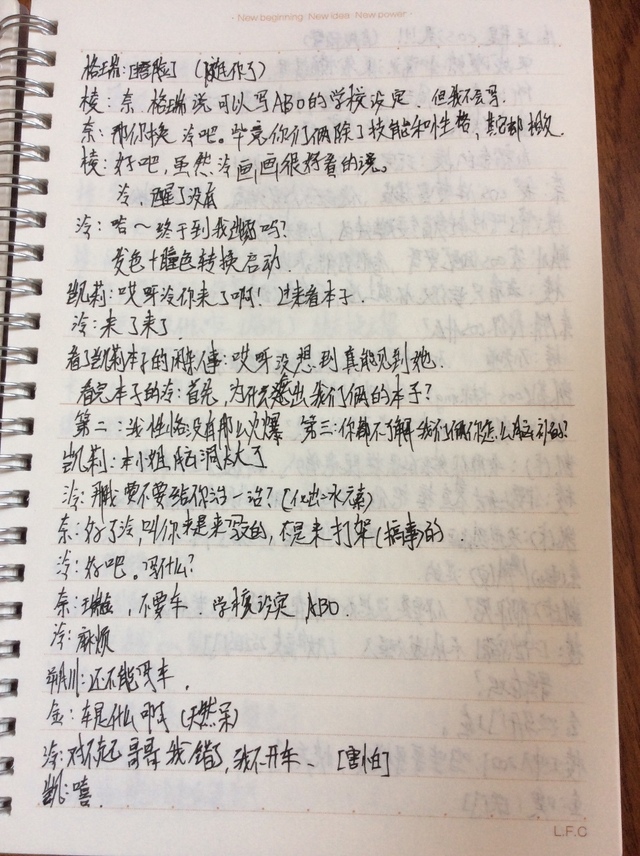 · New beginning · New idea · New power ·
格瑞:[捂脸](难你了)
棱:奈,格瑞说可以写ABO的学校设定,但我不会写.
奈:那你换泠吧。毕竟你们俩除了技能和性格,其它都相似.
棱:好吧,虽然泠画画很好看的说。
泠,醒了没有
泠:哈～终于到我出场吗?
发色+瞳色转换启动.
凯莉:哎呀泠你来了啊! 过来看本子.
泠:来了来了.
看凯莉本子的:哎呀没想到真能见到她.
看完本子的泠:首先,为什么会出我们俩的本子?
第二:我性格没有那么火爆 第三:你都不了解我们俩你怎么脑补的?
凯莉:本小姐脑洞太大了
泠:那我要不要给你治一治?(化出冰元素)
奈:好了泠,叫你来是来写文的,不是来打架(搞事)的.
泠:好吧。写什么?
奈:瑞金,不要车. 学校设定 ABO.
泠:麻烦
川:还不能开车.
金:车是什么啊(天然呆)
泠:对不起哥哥我错了,我不开车. [害怕]
凯:嘻.
L.F.C